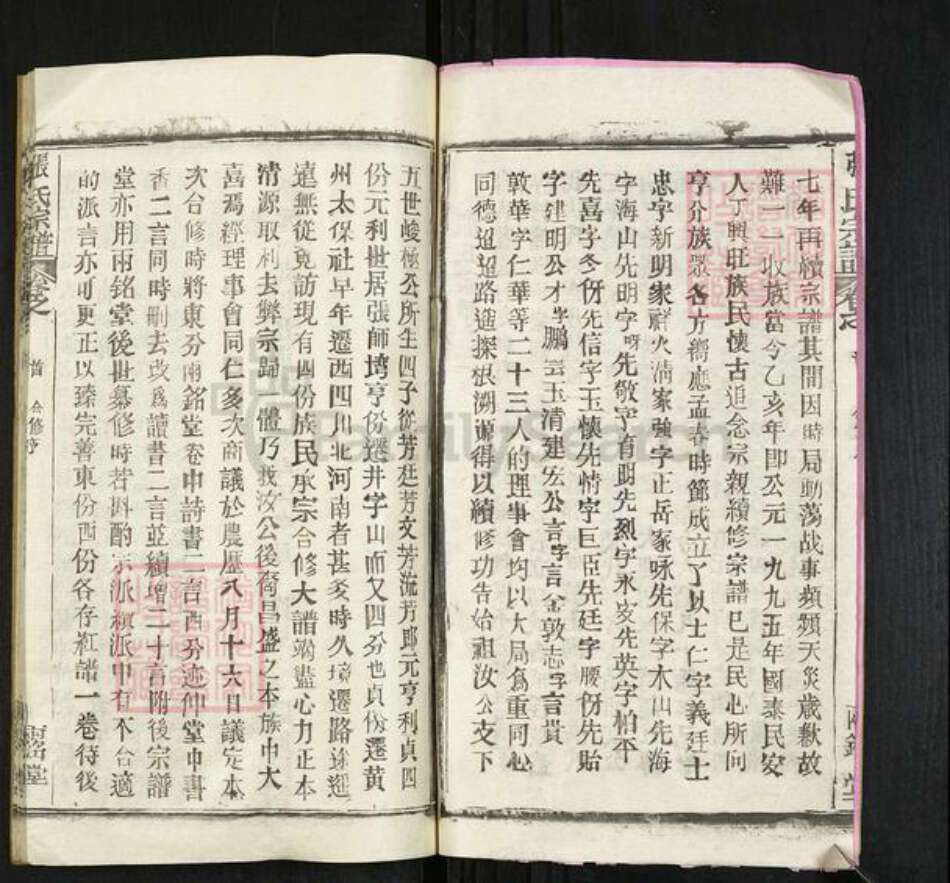 七年再續宗譜其間因時局動荡战事頻頻天災歲歉故
難一一收族當今乙亥年即公元一九九五年國泰民安
人丁興旺族民懷古追念宗親續修宗譜已是民心所向
亨分族眾各方嚮應孟春時節成立了以士仁字義廷士
忠字新明家祥火清家強字正岳家咏先保字木山先海
字海山先明字明先敬字有朗先烈字永安先英字柏平
先喜字冬份先信字玉懷先情字巨臣先廷字腰份先貽
字建明公才字鵬雲玉清建宏公言字言金敦志字言貴
敦華字仁華等二十三人的理事會均以大局為重同心
同德迢迢路遥探根溯源得以續修功告始祖汝公支下
張氏宗譜 卷之 首 合修序 兩銘堂
五世峻極公所生四子從芳廷芳文芳流芳即元亨利貞四
份元利世居張師塆亨份遷井字山而又四分也貞份遷黄
州太保社早年遷西四川北河南者甚多時久境遷路途遥
遠無從覓訪現有四份族民承宗合修大譜竭盡心力正本
清源取利去弊宗歸一體乃我汝公後裔昌盛之本族中大
喜焉經理事會同仁多次商議於農歷八月十六日議定本
次合修時將東分兩銘堂卷中詩書二言西分述仲堂中書
香二言同時删去改為讀書二言並續增二十言附後宗譜
堂亦用兩銘堂後世纂修時若斟酌示派續派中有不合適
的派言亦可更正以臻完善東份西份各存紅譜一卷待後
FamilySearch